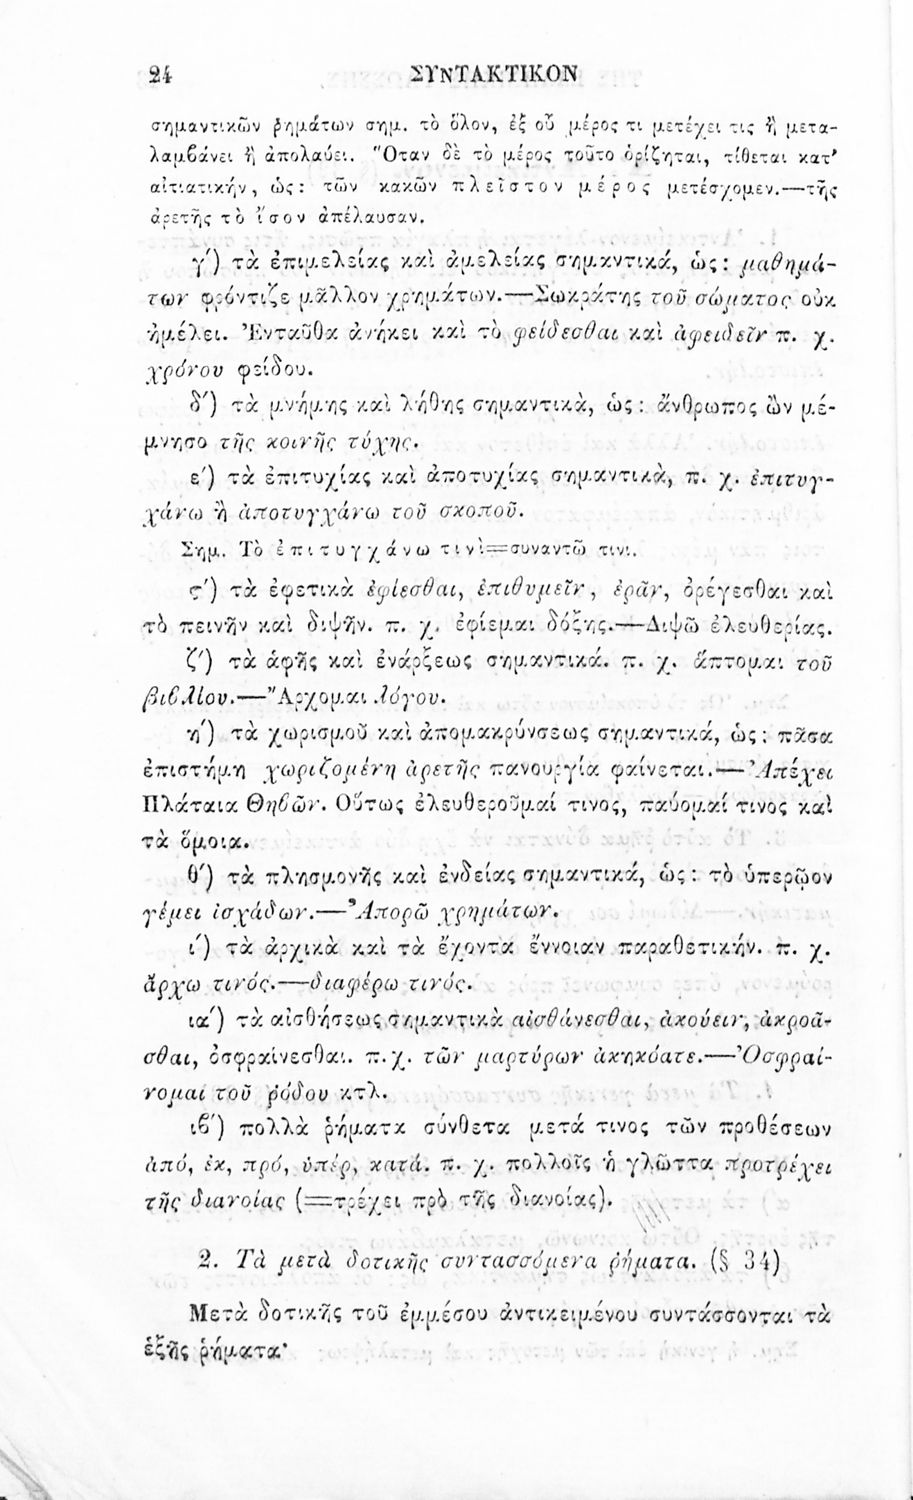 24 ΣΥΝΤΑΚΤΙΚΟΝ
σημαντικῶν ῥημάτων σημ. τὸ ὅλον, ἐξ οὗ μέρος τι μετέχει τις ἢ μετα-
λαμβάνει ἢ ἀπολαύει. Ὅταν δὲ τὸ μέρος τοῦτο ὁρίζηται, τίθεται κατ'
αἰτιατικήν, ὡς: τῶν κακῶν πλεῖστον μέρος μετέσχομεν.—τῆς
ἀρετῆς τὸ ἴσον ἀπέλαυσαν.
γ') τὰ ἐπιμελείας καὶ ἀμελείας σημαντικά, ὡς: μαθημά-
των φρόντιζε μᾶλλον χρημάτων.—Σωκράτης τοῦ σώματος οὐκ
ἠμέλει. Ἐνταῦθα ἀνήκει καὶ τὸ φείδεσθαι καὶ ἀφειδεῖν π. χ.
χρόνου φείδου.
δ') τὰ μνήμης καὶ λήθης σημαντικὰ, ὡς: ἄνθρωπος ὢν μέ-
μνησο τῆς κοινῆς τύχης.
ε') τὰ ἐπιτυχίας καὶ ἀποτυχίας σημαντικὰ, π. χ. ἐπιτυγ-
χάνω ἢ ἀποτυγχάνω τοῦ σκοποῦ.
Σημ. Τὸ ἐπιτυγχάνω τινὶ=συναντῶ τινι.
ς') τὰ ἐφετικὰ ἐφίεσθαι, ἐπιθυμεῖν, ἐρᾶν, ὀρέγεσθαι καὶ
τὸ πεινῆν καὶ διψῆν. π. χ. ἐφίεμαι δόξης.—Διψῶ ἐλευθερίας.
ζ') τὰ ἁφῆς καὶ ἐνάρξεως σημαντικά. π. χ. ἅπτομαι τοῦ
βιβλίου.—Ἄρχομαι λόγου.
η') τὰ χωρισμοῦ καὶ ἀπομακρύνσεως σημαντικά, ὡς: πᾶσα
ἐπιστήμη χωριζομένη ἀρετῆς πανουργία φαίνεται.—Ἀπέχει
Πλάταια Θηβῶν. Οὕτως ἐλευθεροῦμαί τινος, παύομαί τινος καὶ
τὰ ὅμοια.
θ') τὰ πλησμονῆς καὶ ἐνδείας σημαντικά, ὡς: τὸ ὑπερῷον
γέμει ἰσχάδων.—Ἀπορῶ χρημάτων.
ι') τὰ ἀρχικὰ καὶ τὰ ἔχοντα ἔννοιαν παραθετικήν. π. χ.
ἄρχω τινός.—διαφέρω τινός.
ια') τὰ αἰσθήσεως σημαντικὰ αἰσθάνεσθαι, ἀκούειν, ἀκροᾶ-
σθαι, ὀσφραίνεσθαι. π.χ. τῶν μαρτύρων ἀκηκόατε.—Ὀσφραί-
νομαι τοῦ ῥόδου κτλ.
ιβ') πολλὰ ῥήματα σύνθετα μετά τινος τῶν προθέσεων
ἀπό, ἐκ, πρό, ὑπέρ, κατά. π. χ. πολλοῖς ἡ γλῶττα προτρέχει
τῆς διανοίας (=τρέχει πρὸ τῆς διανοίας).
2. Τὰ μετὰ δοτικῆς συντασσόμενα ῥήματα. (§ 34)
Μετὰ δοτικῆς τοῦ ἐμμέσου ἀντικειμένου συντάσσονται τὰ
ἑξῆς ῥήματα·